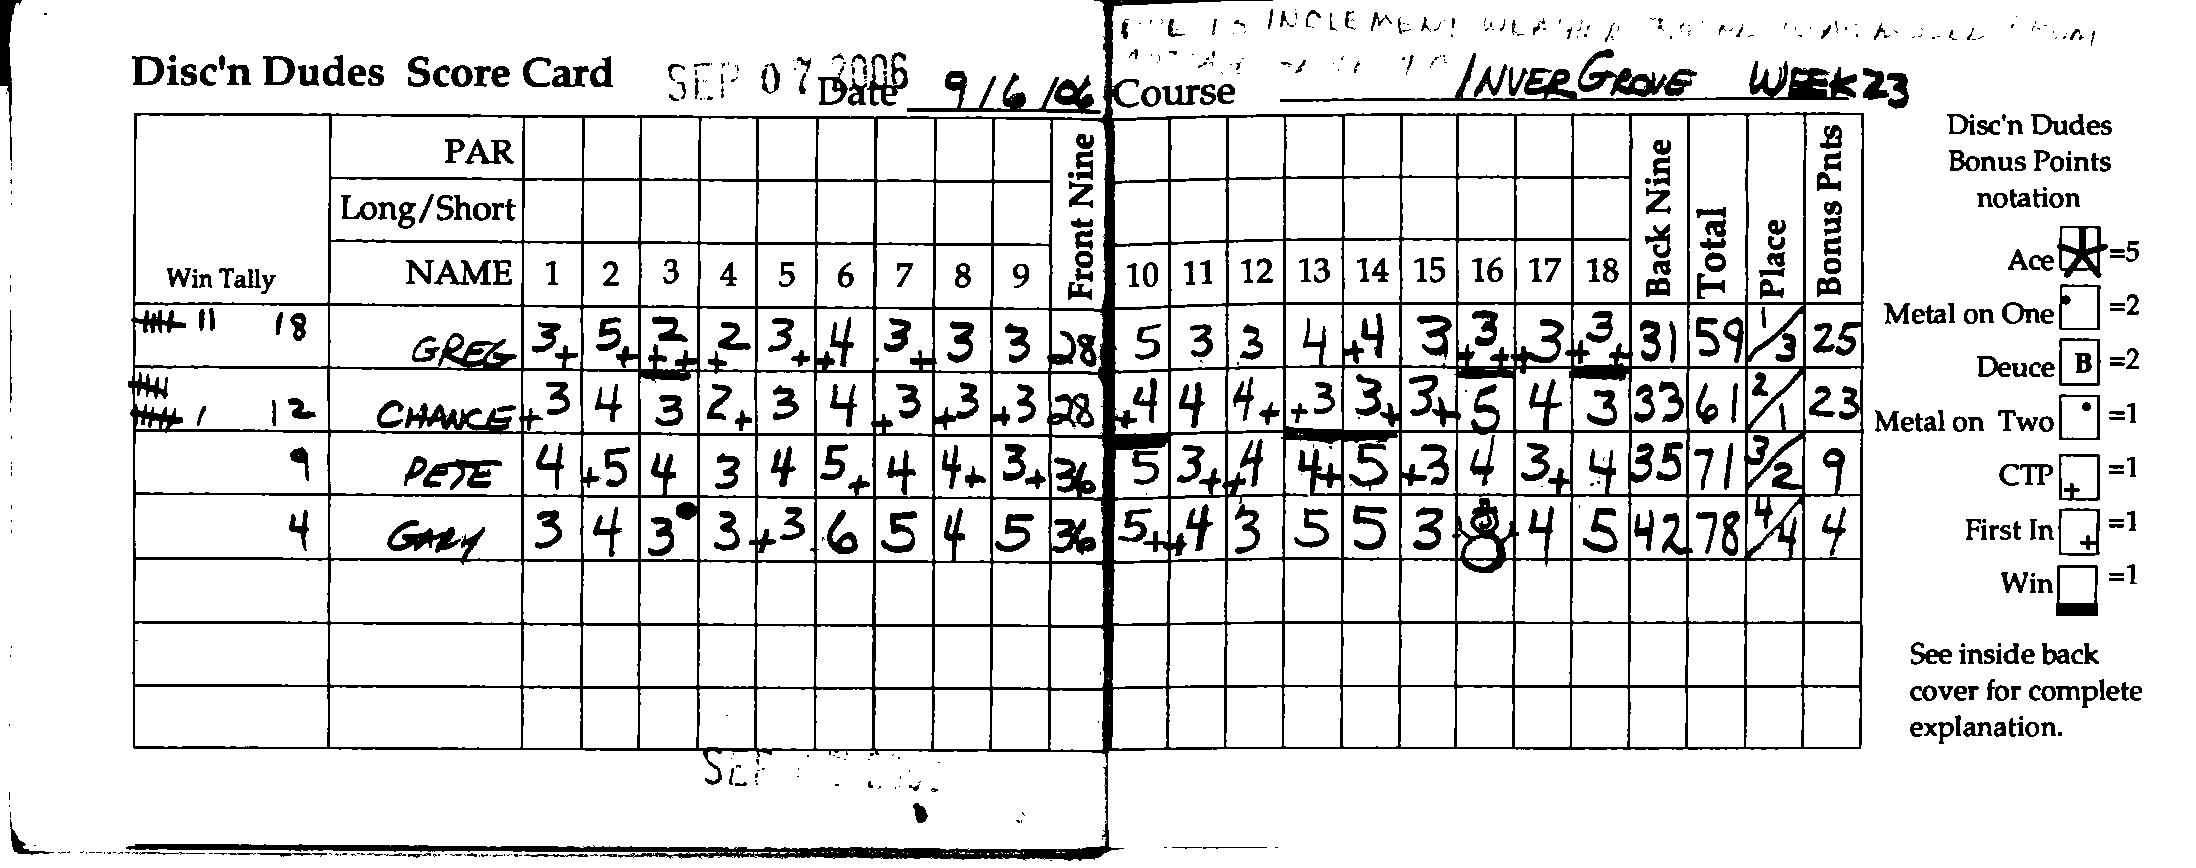 TO INCLEMENT WEATHER
Disc'n Dudes Score Card SEP 07 2006 Date 9/6/06 Course INVER GROVE WEEK 23
PAR
Long/Short
Win Tally NAME 1 2 3 4 5 6 7 8 9 Front Nine 10 11 12 13 14 15 16 17 18 Back Nine Total Place Bonus Pnts
18 GREG 3+ 5+ +2+ +2 3+ +4 3+ 3 3 28 5 3 3 4 +4 3 +3+ +3 +3+ 31 59 1/3 25
12 CHANCE +3 4 3 2+ 3 4 +3 +3 +3 28 +4 4 4+ +3 3+ 3+ 5 4 3 33 61 2/1 23
9 PETE 4 +5 4 3 4 5+ 4 4+ 3+ 36 5 3+ +4 4+ 5 +3 4 3+ 4 35 71 3/2 9
4 GARY 3 4 3 3 +3 6 5 4 5 36 5+ +4 3 5 5 3 8 4 5 42 78 4/4 4
Disc'n Dudes
Bonus Points
notation
Ace =5
Metal on One =2
Deuce B =2
Metal on Two =1
CTP + =1
First In + =1
Win =1
See inside back
cover for complete
explanation.
SEP